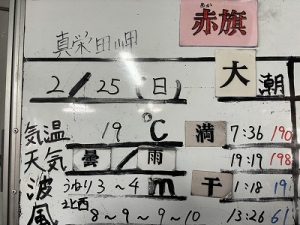 赤旗
真栄田岬
2/25(日) 大潮
気温 19℃ 満 7:36 190
天気 曇/雨 19:19 198
波 うねり3~4m 干 1:18 19
風 北西 8~9~9~10 13:26 61